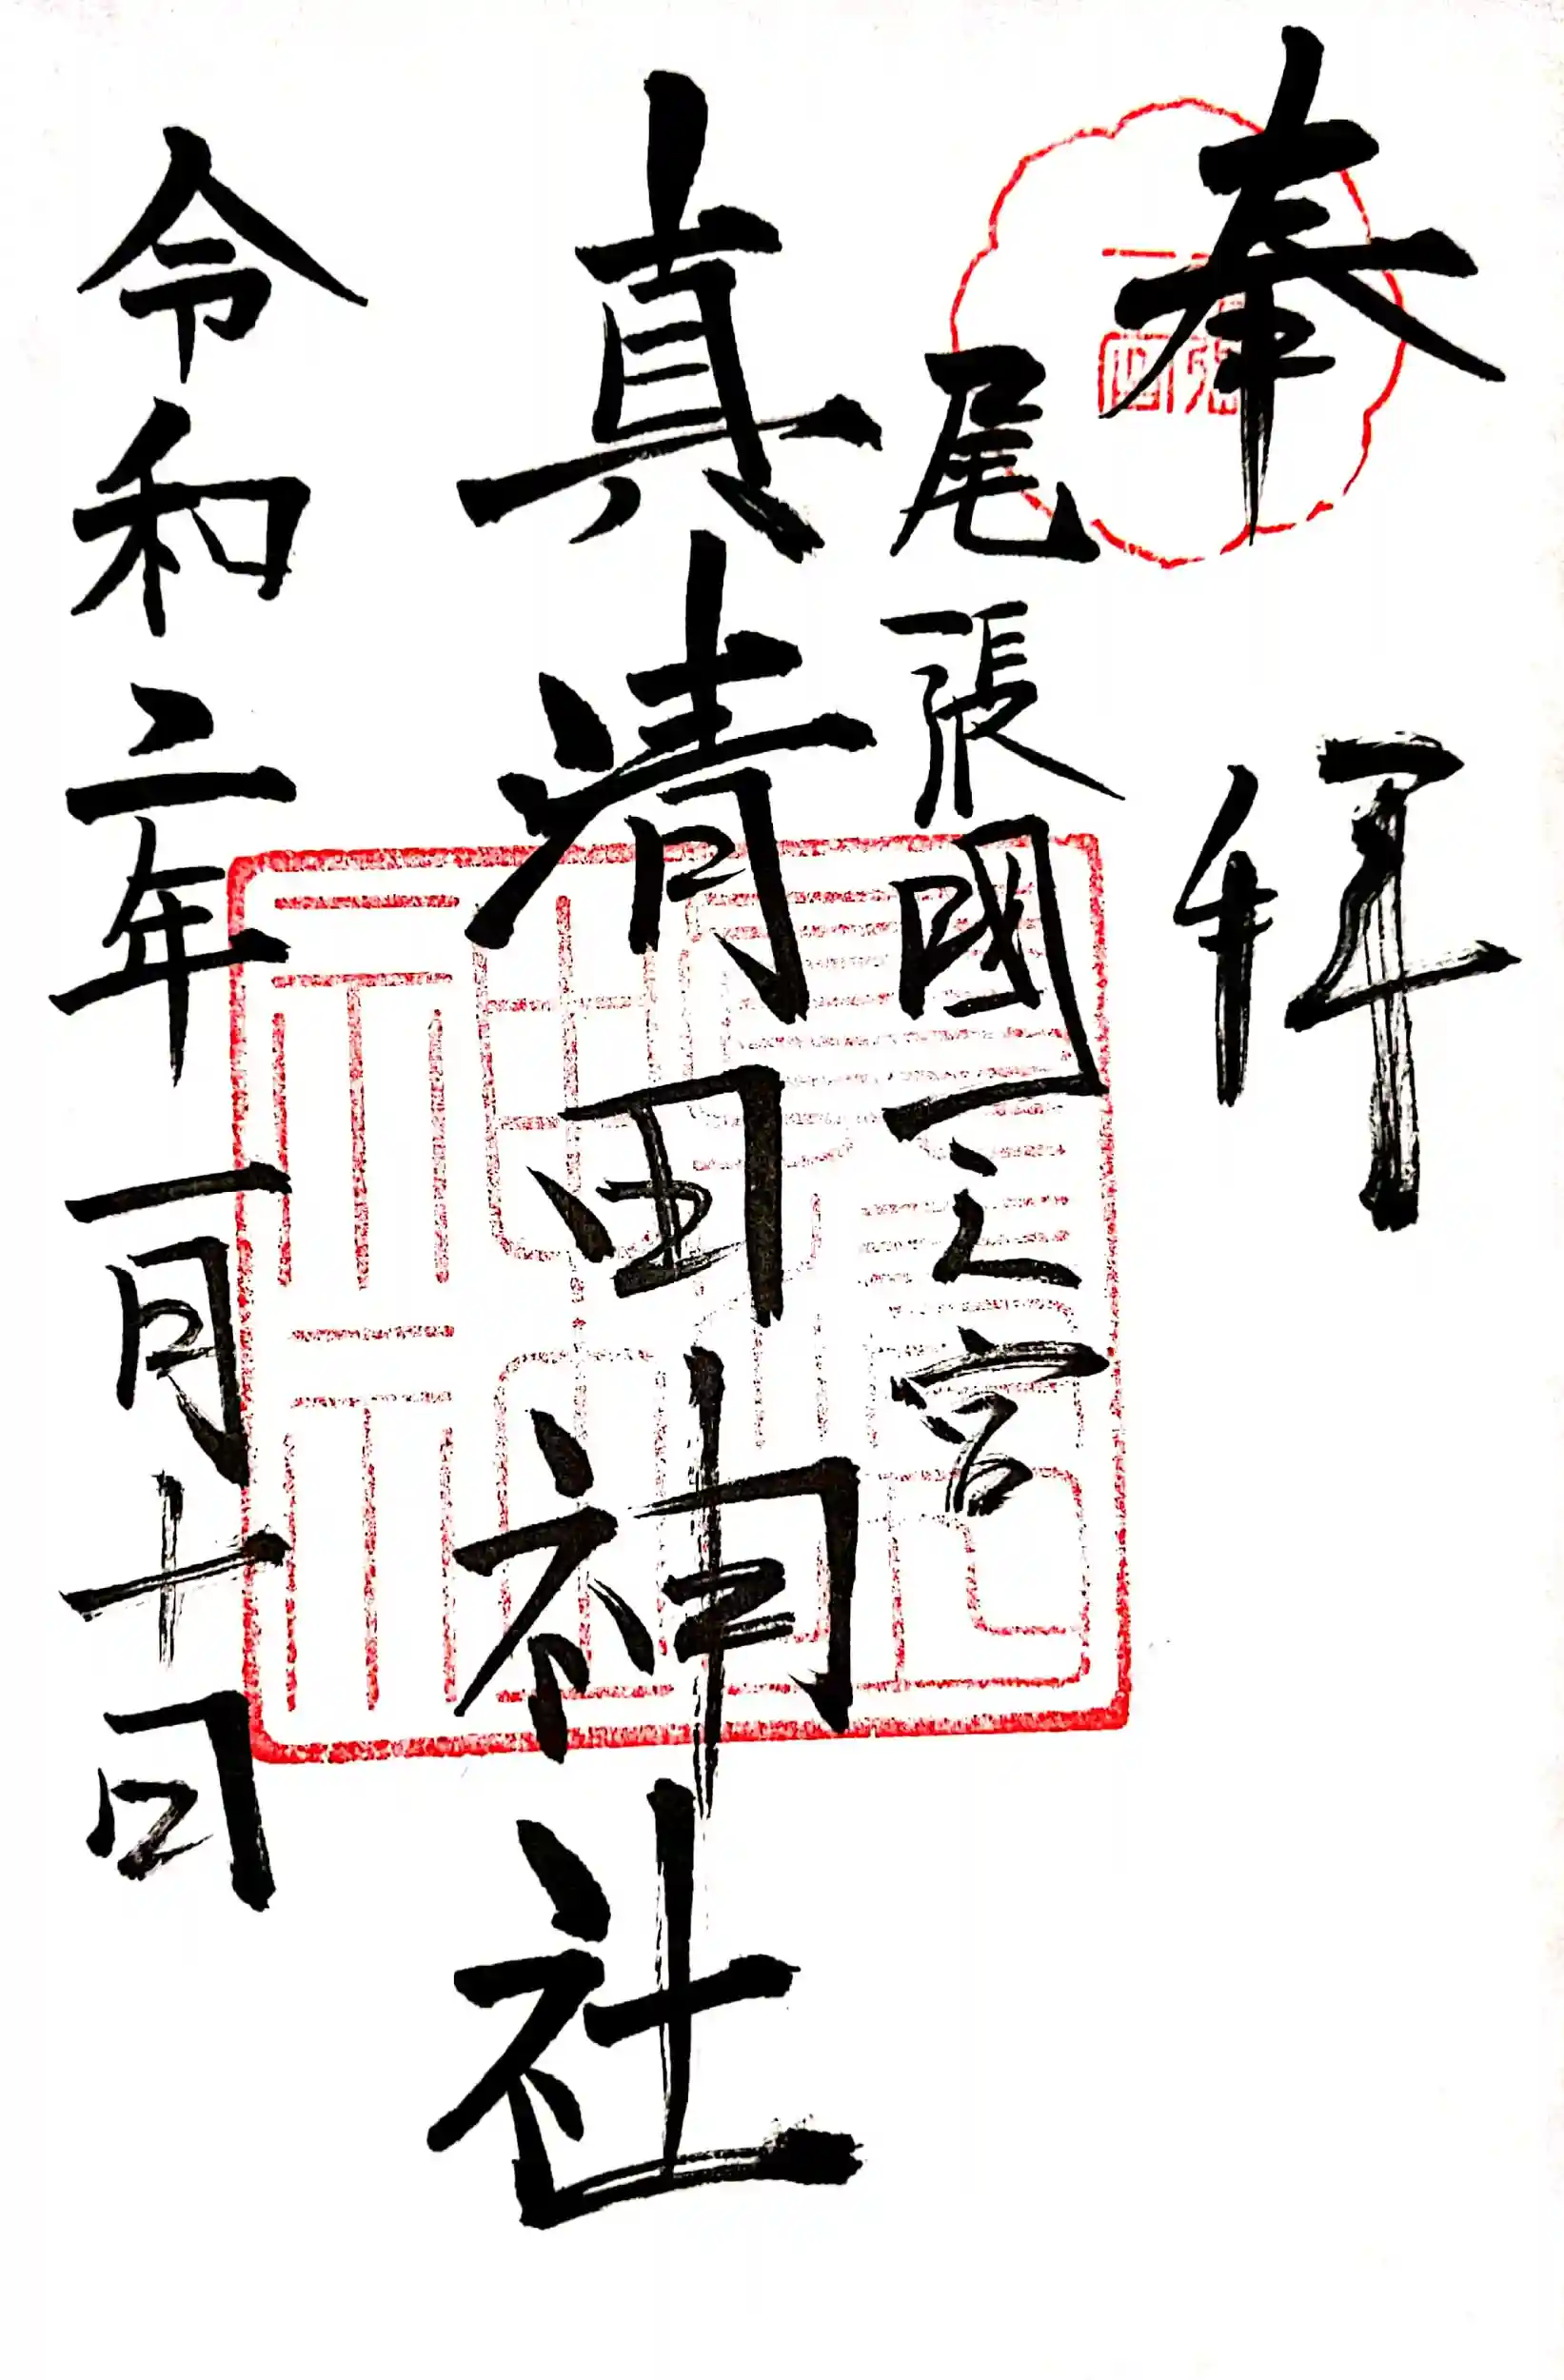 奉拝
尾張國一之宮
真清田神社
令和二年一月十日